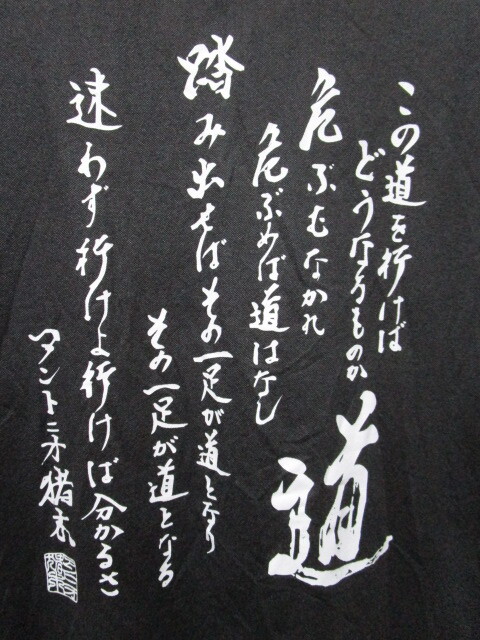 道
この道を行けば
どうなるものか
危ぶむなかれ
危ぶめば道はなし
踏み出せばその一足が道となり
その一足が道となる
迷わず行けよ行けば分かるさ
アントニオ猪木